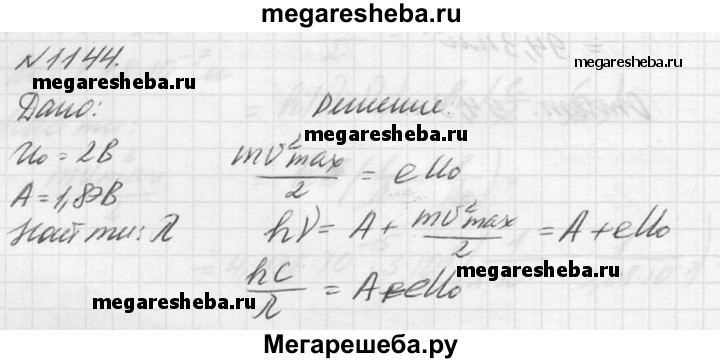 megaresheba.ru
N 1144.
megaresheba.ru
megaresheba.ru
Дано:
Решение:
megaresheba.ru
U₀ = 2В
mv²max/2 = eU₀
A = 1,8эВ
Найти: λ
hν = A + mv²max/2 = A + eU₀
megaresheba.ru
hc/λ = A + eU₀
megaresheba.ru
Мегарешеба.ру